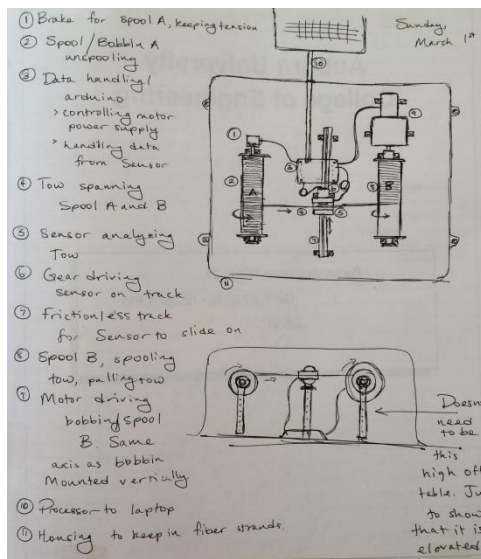 ① Brake for spool A, keeping tension
② Spool/Bobbin A
unspooling
③ Data handling/
arduino
> controlling motor
power supply
> handling data
from Sensor
④ Tow spanning
Spool A and B
⑤ Sensor analyzing
Tow
⑥ Gear driving
sensor on track
⑦ Frictionless track
for Sensor to slide on
⑧ Spool B, spooling
tow, pulling tow
⑨ Motor driving
bobbin/spool
B. Same
axis as bobbin
Mounted vertically
⑩ Processor to laptop
⑪ Housing to keep in fiber strands.
Sunday,
March 1st
⑩
①
⑨
③
②
A
⑧
B
④
⑤
⑦
⑪
Doesn
need
to be
this
high off
table. Ju
to show
that it is
elevated
University
College of Engineering